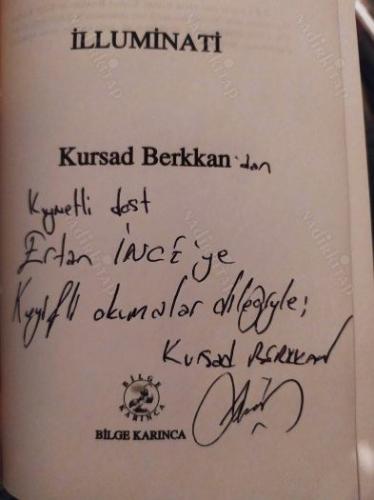 İLLUMİNATİ
Kursad Berkkan'dan
Kıymetli dost
Ertan İNCE'ye
Keyifli okumalar dileğiyle;
Kursad BERKKAN
BİLGE
KARINCA
BİLGE KARINCA